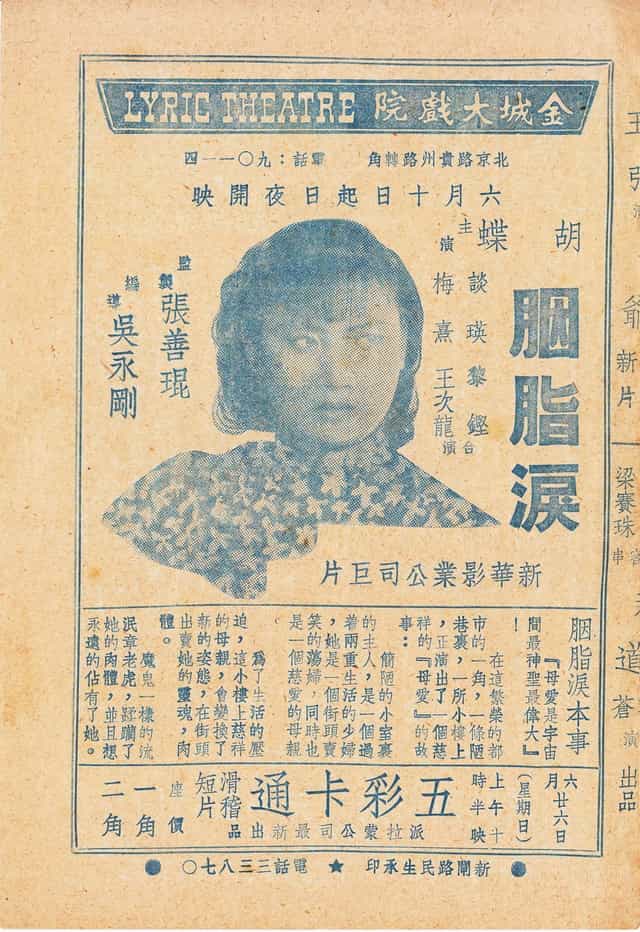 金城大戲院 LYRIC THEATRE
北京路貴州路轉角 電話：九〇一一四
六月十日起日夜開映
胡蝶
主演
胭脂淚
談瑛 黎鏗
梅熹 王次龍
合演
監製 張善琨
編導 吳永剛
新華影業公司巨片
胭脂淚本事
『母愛是宇宙
間最神聖最偉大』
！
在這繁榮的都
市的一角，一條陋
巷裏，一所小樓上
，正演出了一個慈
祥的『母愛』的故
事：
簡陋的小室裏
的主人，是一個過
着兩重生活的少婦
，她是一個街頭賣
笑的蕩婦，同時也
是一個慈愛的母親
爲了生活的壓
迫，這小樓上慈祥
的母親，會變換了
新的姿態，在街頭
出賣她的靈魂，肉
體。
魔鬼一樣的流
氓章老虎，蹂躪了
她的肉體，並且想
永遠的佔有了她。
六月廿六日
（星期日）
上午十
時半映
五彩卡通
派拉蒙公司最新出品
滑稽
短片
座價
一角
二角
新閘路民生承印 ★ 電話三三八七〇
王
張
爺
新片
梁賽珠
客串
道
蒼
演
出品